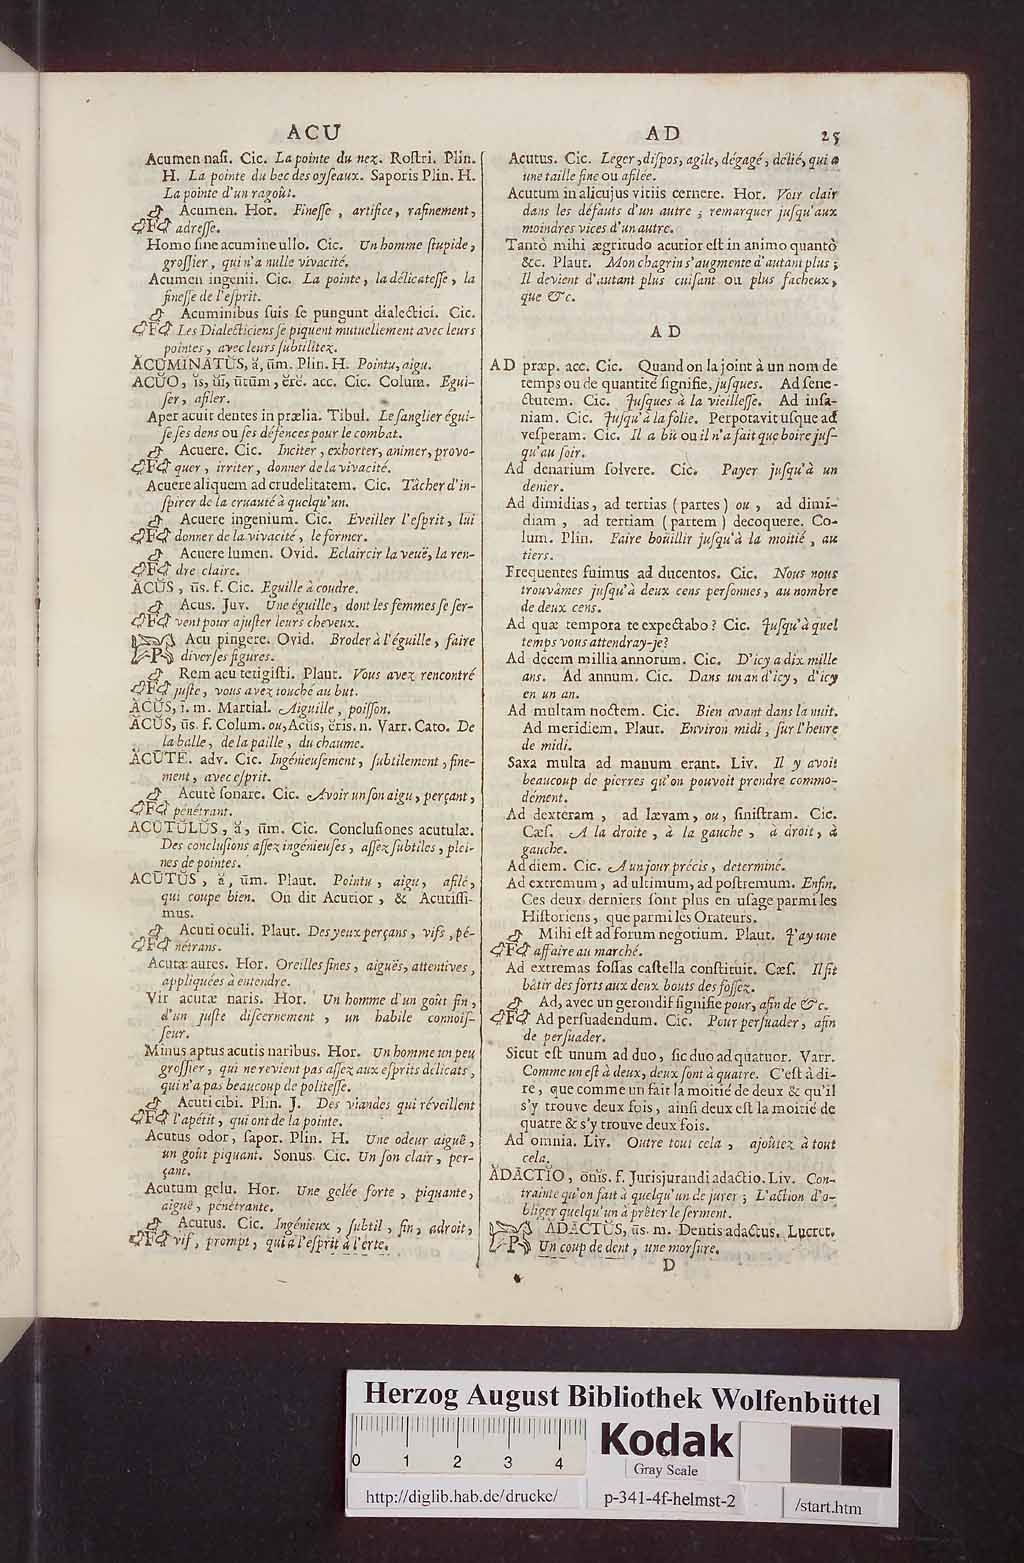 ACU
AD
25
Acumen nasi. Cic. La pointe du nez. Rostri. Plin.
H. La pointe du bec des oyseaux. Saporis Plin. H.
La pointe d'un ragoût.
Acumen. Hor. Finesse, artifice, rafinement,
F adresse.
Homo sine acumine ullo. Cic. Un homme stupide,
grossier, qui n'a nulle vivacité.
Acumen ingenii. Cic. La pointe, la délicatesse, la
finesse de l'esprit.
Acuminibus suis se pungunt dialectici. Cic.
F Les Dialecticiens se piquent mutuellement avec leurs
pointes, avec leurs subtilitez.
ĂCŪMINĀTŬS, ă, ūm. Plin. H. Pointu, aigu.
ĂCŬO, ĭs, ŭī, ūtūm, ĕrĕ. acc. Cic. Colum. Egui-
ser, afiler.
Aper acuit dentes in prælia. Tibul. Le sanglier égui-
se ses dens ou ses défences pour le combat.
Acuere. Cic. Inciter, exhorter, animer, provo-
F quer, irriter, donner de la vivacité.
Acuere aliquem ad crudelitatem. Cic. Tâcher d'in-
spirer de la cruauté à quelqu'un.
Acuere ingenium. Cic. Eveiller l'esprit, lui
F donner de la vivacité, le former.
Acuere lumen. Ovid. Eclaircir la veuë, la ren-
F dre claire.
ĂCŬS, ūs. f. Cic. Eguille à coudre.
Acus. Juv. Une éguille, dont les femmes se ser-
F vent pour ajuster leurs cheveux.
Acu pingere. Ovid. Broder à l'éguille, faire
P diverses figures.
Rem acu tetigisti. Plaut. Vous avez rencontré
F juste, vous avez touché au but.
ĂCŬS, i. m. Martial. Aiguille, poisson.
ĂCŬS, ūs. f. Colum. ou, Acŭs, ĕris. n. Varr. Cato. De
la balle, de la paille, du chaume.
ĂCŪTĒ. adv. Cic. Ingénieusement, subtilement, fine-
ment, avec esprit.
Acutè sonare. Cic. Avoir un son aigu, perçant,
F pénétrant.
ĂCŪTŬLŬS, ă, ūm. Cic. Conclusiones acutulæ.
Des conclusions assez ingénieuses, assez subtiles, plei-
nes de pointes.
ĂCŪTŬS, ă, ūm. Plaut. Pointu, aigu, afilé,
qui coupe bien. On dit Acutior, & Acutissi-
mus.
Acuti oculi. Plaut. Des yeux perçans, vifs, pé-
F nétrans.
Acutæ aures. Hor. Oreilles fines, aiguës, attentives,
appliquées à entendre.
Vir acutæ naris. Hor. Un homme d'un goût fin,
d'un juste discernement, un habile connois-
seur.
Minus aptus acutis naribus. Hor. Un homme un peu
grossier, qui ne revient pas assez aux esprits délicats,
qui n'a pas beaucoup de politesse.
Acuti cibi. Plin. J. Des viandes qui réveillent
F l'apétit, qui ont de la pointe.
Acutus odor, sapor. Plin. H. Une odeur aiguë,
un goût piquant. Sonus. Cic. Un son clair, per-
çant.
Acutum gelu. Hor. Une gelée forte, piquante,
aiguë, pénétrante.
Acutus. Cic. Ingénieux, subtil, fin, adroit,
F vif, prompt, qui a l'esprit à l'erte.
Acutus. Cic. Leger, dispos, agile, dégagé, délié, qui a
une taille fine ou afilée.
Acutum in alicujus vitiis cernere. Hor. Voir clair
dans les défauts d'un autre; remarquer jusqu'aux
moindres vices d'un autre.
Tantò mihi ægritudo acutior est in animo quantò
&c. Plaut. Mon chagrin s'augmente d'autant plus;
Il devient d'autant plus cuisant ou plus facheux,
que &c.
AD
AD præp. acc. Cic. Quand on la joint à un nom de
temps ou de quantité signifie, jusques. Ad sene-
ctutem. Cic. Jusques à la vieillesse. Ad insa-
niam. Cic. Jusqu'à la folie. Perpotavit usque ad
vesperam. Cic. Il a bû ou il n'a fait que boire jus-
qu'au soir.
Ad denarium solvere. Cic. Payer jusqu'à un
denier.
Ad dimidias, ad tertias (partes) ou, ad dimi-
diam, ad tertiam (partem) decoquere. Co-
lum. Plin. Faire boüillir jusqu'à la moitié, au
tiers.
Frequentes fuimus ad ducentos. Cic. Nous nous
trouvâmes jusqu'à deux cens personnes, au nombre
de deux cens.
Ad quæ tempora te expectabo? Cic. Jusqu'à quel
temps vous attendray-je?
Ad decem millia annorum. Cic. D'icy a dix mille
ans. Ad annum. Cic. Dans un an d'icy, d'icy
en un an.
Ad multam noctem. Cic. Bien avant dans la nuit.
Ad meridiem. Plaut. Environ midi, sur l'heure
de midi.
Saxa multa ad manum erant. Liv. Il y avoit
beaucoup de pierres qu'on pouvoit prendre commo-
dément.
Ad dexteram, ad lævam, ou, sinistram. Cic.
Cæs. A la droite, à la gauche, à droit, à
gauche.
Ad diem. Cic. A un jour précis, determiné.
Ad extremum, ad ultimum, ad postremum. Enfin.
Ces deux derniers sont plus en usage parmi les
Historiens, que parmi les Orateurs.
Mihi est ad forum negotium. Plaut. J'ay une
F affaire au marché.
Ad extremas fossas castella constituit. Cæs. Il fit
bâtir des forts aux deux bouts des fossez.
Ad, avec un gerondif signifie pour, afin de &c.
F Ad persuadendum. Cic. Pour persuader, afin
de persuader.
Sicut est unum ad duo, sic duo ad quatuor. Varr.
Comme un est à deux, deux sont à quatre. C'est à di-
re, que comme un fait la moitié de deux & qu'il
s'y trouve deux fois, ainsi deux est la moitié de
quatre & s'y trouve deux fois.
Ad omnia. Liv. Outre tout cela, ajoûtez à tout
cela.
ĂDĀCTĬO, ōnĭs. f. Jurisjurandi adactio. Liv. Con-
trainte qu'on fait à quelqu'un de jurer; L'action d'o-
bliger quelqu'un à prêter le serment.
ĂDĀCTŬS, ūs. m. Dentis adactus. Lucret.
P Un coup de dent, une morsure.
D
Herzog August Bibliothek Wolfenbüttel
0 1 2 3 4
Kodak
Gray Scale
http://diglib.hab.de/drucke/
p-341-4f-helmst-2
/start.htm